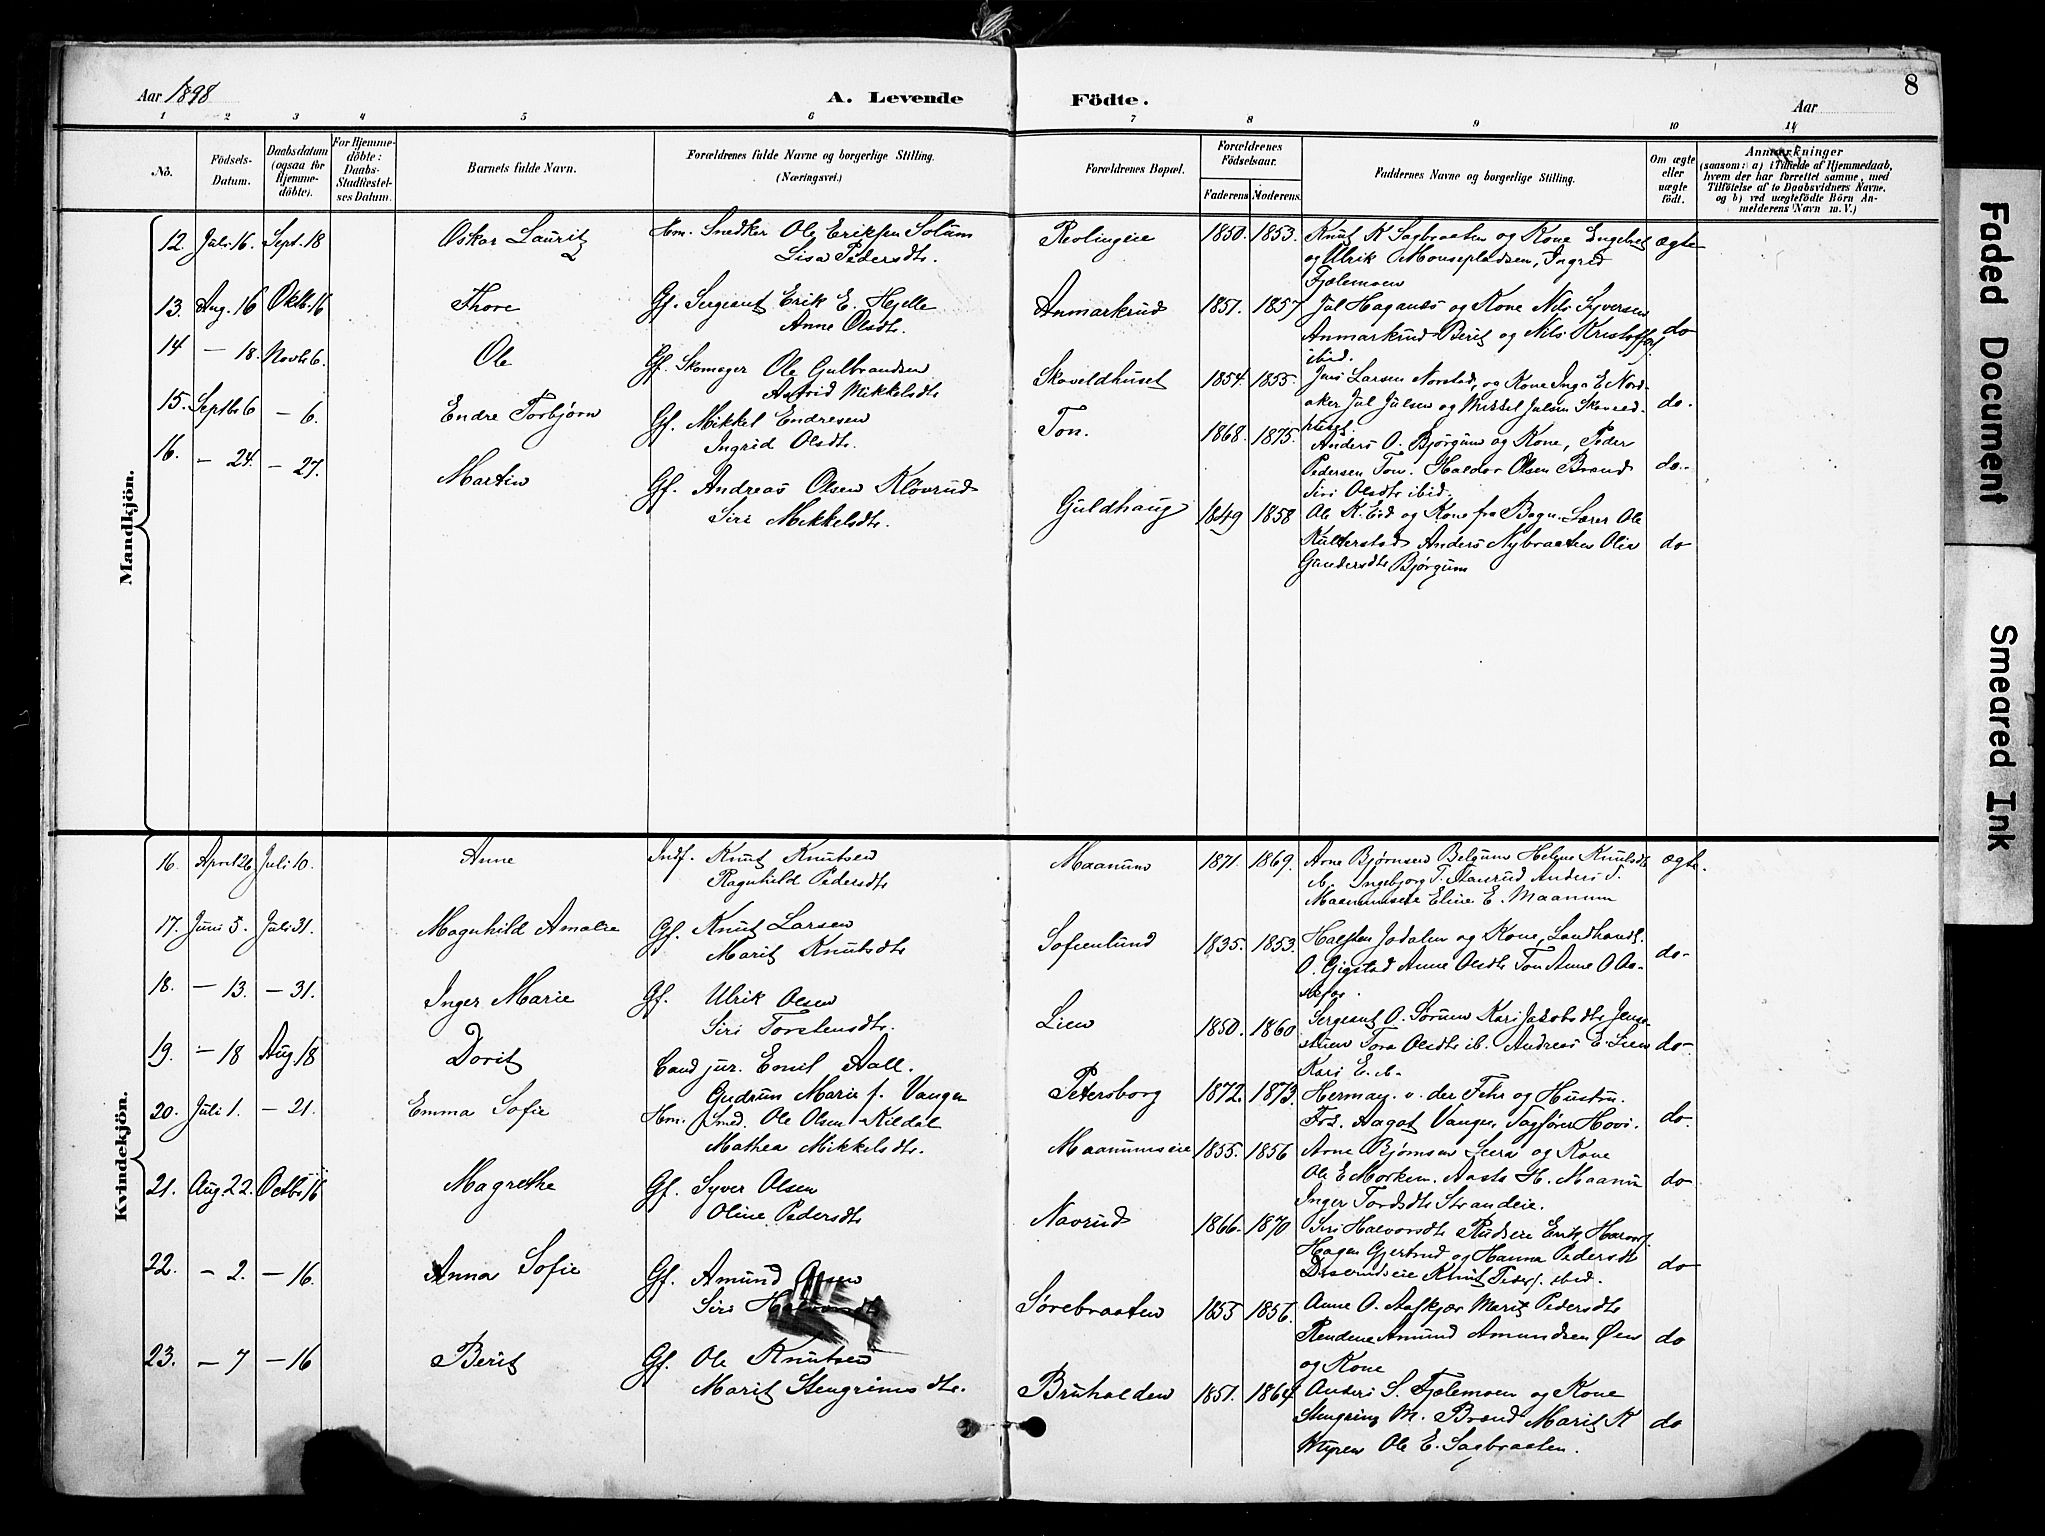 Aar 1898
A. Levende
Födte.
Aar
8
1 2 3 4 5 6 7 8 9 10 11
No.
Födsels-Datum.
Daabsdatum (ogsaa for Hjemmedöbte).
For Hjemmedöbte: Daabs-Stadfæstelses Datum.
Barnets fulde Navn.
Forældrenes fulde Navne og borgerlige Stilling. (Næringsvei.)
Forældrenes Bopæl.
Forældrenes Födselsaar.
Faderens.
Moderens.
Faddernes Navne og borgerlige Stilling.
Om ægte eller uægte födt.
Anmærkninger
(saasom: a) i Tilfælde af Hjemmedaab,
hvem der har forrettet samme, med
Tilföielse af to Daabsvidners Navne,
og b) ved uægtefödte Börn Anmelderens Navn m. V.)
Mandkjön.
12. Juli 16. Sept. 18 Oskar Lauritz Hm. Snedker Ole Eriksen Solum
Lisa Pedersdtr. 1850. 1853. Knut K Sagbraaten og Kone Engebret
og Ulrik Mousepladsen, Ingrid
Fjelemoen ægte
13. Aug. 16 Oktb. 16 Thore Gf. Sergeant Erik E. Hjelle
Anne Olsdtr. Anmarkrud 1851. 1857 Jul Haganæs og Kone Nils Syversen
Anmarkrud Berit og Nils Kristoffers.
ibid. do
14 — 18. Novb 6. Ole Gf. Skomager Ole Gulbrandsen
Astrid Mikkelsdtr. Skoveldhuset 1854. 1855. Jens Larsen Norstad, og Kone Inga E Nord-
aker Jul Julsen og Mikkel Julsen do.
15. Septb 6 — 6. Endre Torbjørn Gf. Mikkel Endresen
Ingrid Olsdtr. Ton. 1868. 1875. Anders O. Bjørgum og Kone, Peder
Pedersen Ton. Haldor Olsen Brand
Siri Olsdtr ibid. do.
16. — 24. — 27. Martin Gf. Andreas Olsen Kløvrud
Siri Mikkelsdtr. Guldhaug 1849 1858 Ole K. Eid og Kone fra Bagn. Lærer Ole
Anders Nybraaten
Bjørgum do
Kvindekjön.
16. April 26. Juli 10. Anne Indf. Knut Knutsen
Ragnhild Pedersdtr Maanum 1871. 1869. Arne Bjørnsen Belgum Helene Knutsdtr
Ingebjørg T. Staurud Anders T.
Maanumseie Eline E. Maanum ægte.
17. Juni 5. Juli 31. Magnhild Amalie Gf. Knut Larsen
Marit Knutsdtr Sofienlund 1835. 1853. Halsten Jodalen og Kone, Landhandl.
O. Gigstad Anne Olsdtr Ton Anne O do.
18. — 13. — 31. Inger Marie Gf. Ulrik Olsen
Siri Torstensdtr. Lien 1850. 1860 Sergeant O. Sørum Kari Jakobsdtr
Tora Olsdtr ib. Andreas E. Lien
Kari E. do.
19. — 18 Aug. 18 Dorit Cand jur. Emil Aall.
Gudrun Marie f. Vangen Petersborg 1872. 1873. Herman v. der Fehr og Hustru.
Frk. Aagot Vangen, Sagfører Hovi. do.
20. Juli 1. — 21. Emma Sofie Hm. Smed. Ole Olsen Kildal
Mathea Mikkelsdtr. Maanumseie 1855. 1856 Arne Bjørnsen Leira og Kone
Ole E Morken. Aasta H. Maanum
Inger Tordsdtr Strandeie. do
21. Aug. 22. Octb. 16 Magrethe Gf. Syver Olsen
Oline Pedersdtr Navrud 1866. 1870 Siri Halvorsdtr Rudseie Erik
Hagen Gjertrud og Hanna Pedersdtr
Disrudseie Knut Peders. ibid. do
22. — 2. — 16. Anna Sofie Gf. Amund Olsen
Siri Sørebraaten 1855 1856. Anne O. Aafkjær Marit Pedersdtr
Amund Amundsen Øens
og Kone do
23. — 7 — 16 Berit Gf. Ole Knutsen
Marit Stengrimsdtr. Bruhalden 1851. 1864 Anders S. Fjelemoen og Kone
Stengrim M. Brand Marit K
Ole E. Sagbraaten. do
Faded Document
Smeared Ink